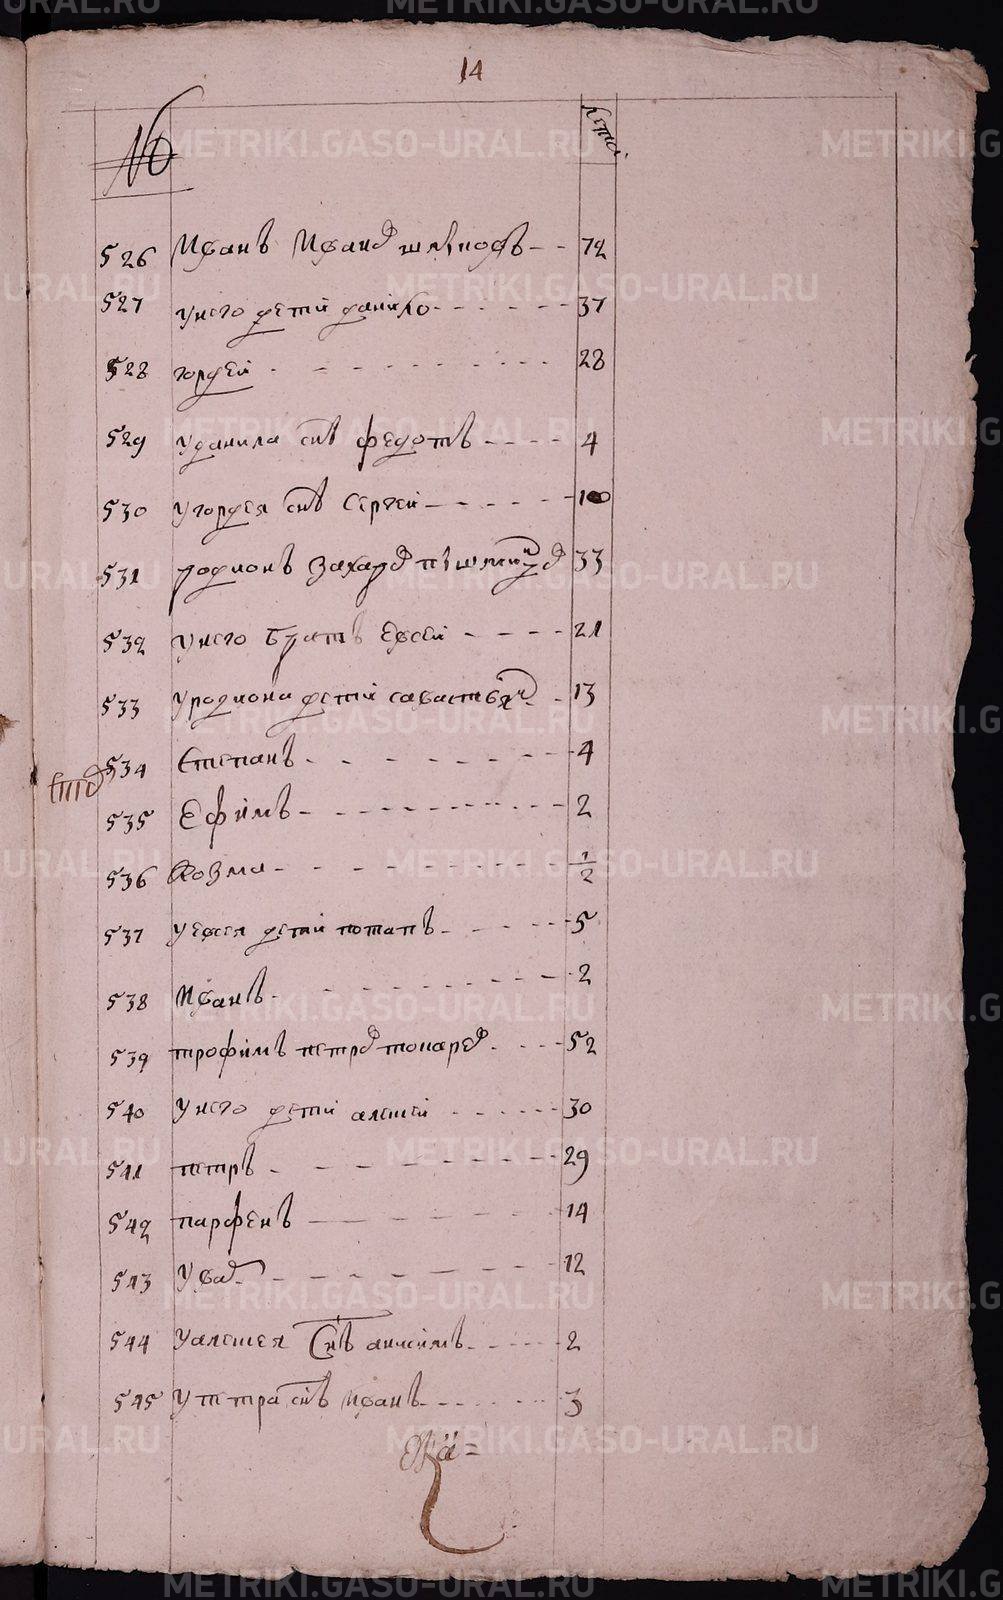 14
№ летa
526 Иванъ Иванов шляповъ - - 72
527 унего детей данило - - - - - - 37
528 гордей - - - - - - - - - 28
529 уданила снъ федотъ - - - - 4
530 угордея снъ Сергей - - - - - 10
531 родионъ Захаров 33
532 унего братъ Евсей - - - - 21
533 уродиона детей савастьян - 13
534 Степанъ - - - - - - - - 4
535 Ефимъ - - - - - - - - - 2
536 Козма - - - - - - - - 1/2
537 уевсея детей потапъ - - - - - 5
538 Иванъ - - - - - - - - 2
539 трофимъ петров токарев - - - - 52
540 унего детей алексей - - - - - - 30
541 петръ - - - - - - - - 29
542 парфенъ - - - - - - - 14
543 Увар - - - - - - - - 12
544 уалексея Снъ анисимъ - - - - - 2
545 упетра снъ иванъ - - - - - - 3
METRIKI.GASO-URAL.RU